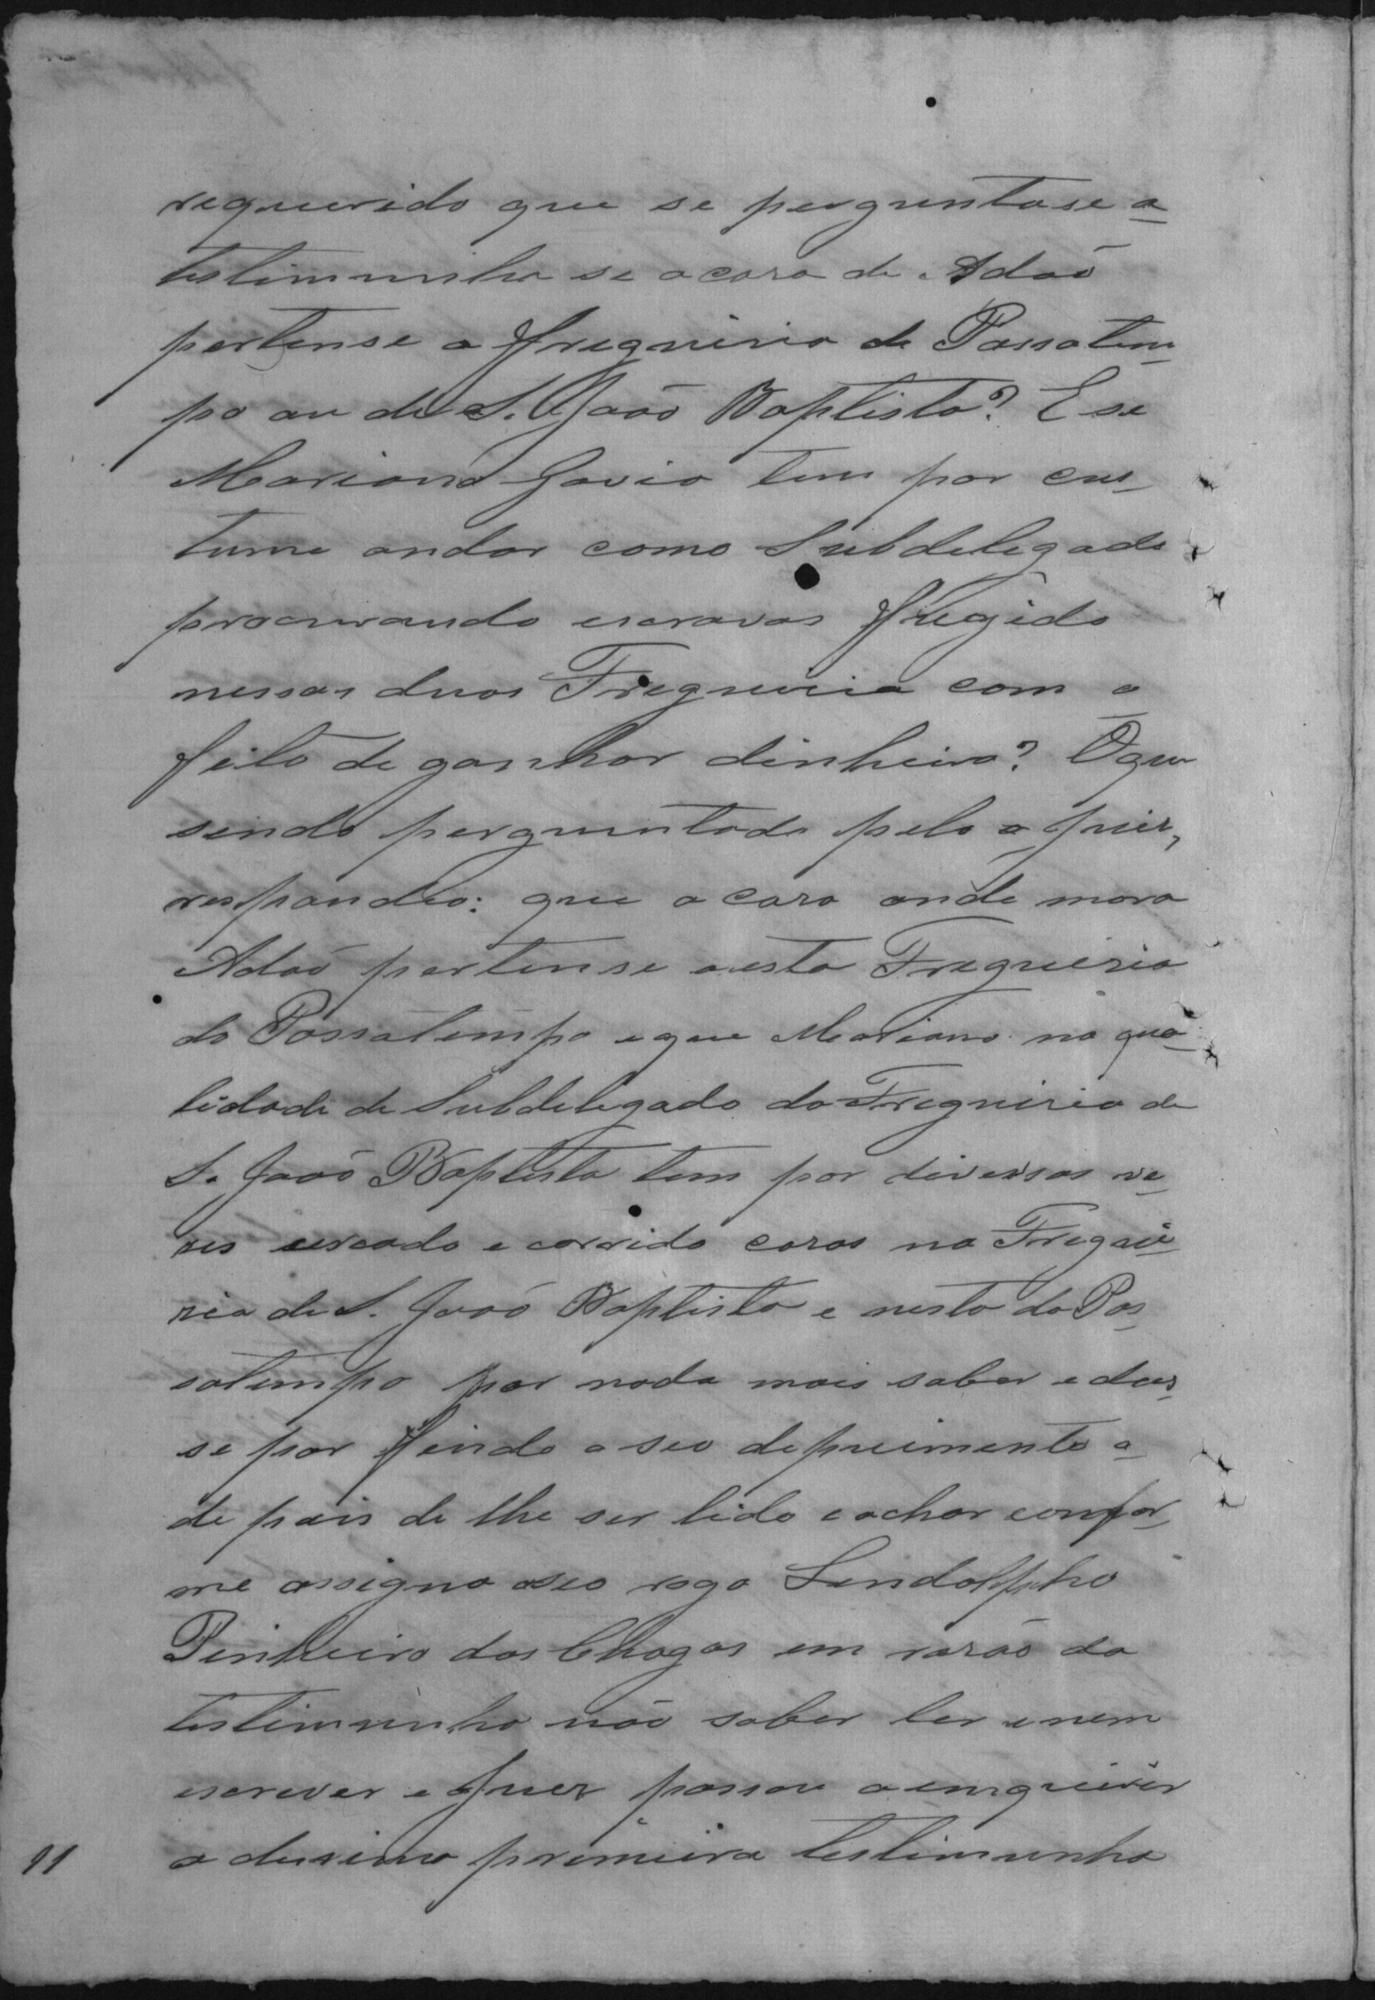 requerido que se perguntase a
testimunha se a casa de Adaõ
pertense a freguisia de Passatem
po ou de S. Joaõ Baptista? E se
Mariano Gavio tem por cus_
tume andar como Subdelegado
procurando escravos fugido
nessas duas Freguisia com o
fito de ganhar dinheiro? O que
sendo perguntado pelo o juis,
respondeo: que a casa onde mora
Adaõ pertense a esta Freguisia
do Passatempo e que Mariano na qua_
lidade de Subdelegado da Freguisia de
S. Joaõ Baptista tem por diversas ve_
ses sercado e corrido casas na Fregui_
sia de S. Joaõ Baptista e nesta do Pas_
satempo por nada mais saber e deu_
se por findo o seo depuimento e
depois de lhe ser lido e achar confor_
me assigna aseo rogo Lindolpho
Pinheiro das Chagas em rasaõ da
testimunha não saber ler e nem
escrever e o Juez passou a enquirir
11 a desima primeira testimunha